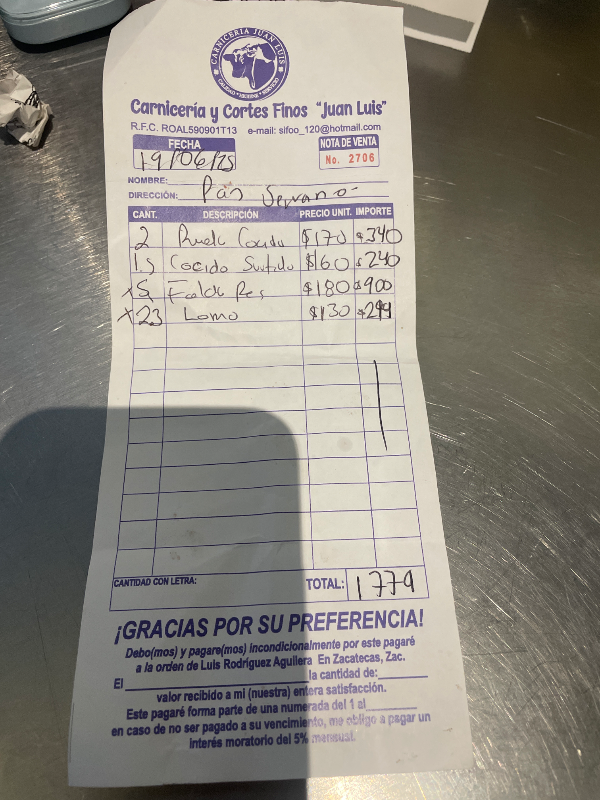 CARNICERIA JUAN LUIS
CALIDAD • HIGIENE • SERVICIO
Carnicería y Cortes Finos "Juan Luis"
R.F.C. ROAL590901T13 e-mail: slfoo_120@hotmail.com
FECHA NOTA DE VENTA
19/06/25 No. 2706
NOMBRE:
DIRECCIÓN: Serrano
CANT. DESCRIPCIÓN PRECIO UNIT. IMPORTE
2 Cocido $170 $340
1.5 Cocido Surtido $160 $240
x5 Falda Res $180 $900
x23 Lomo $130 $299
CANTIDAD CON LETRA: TOTAL: 1779
¡GRACIAS POR SU PREFERENCIA!
Debo(mos) y pagare(mos) incondicionalmente por este pagaré
a la orden de Luis Rodríguez Aguilera En Zacatecas, Zac.
El la cantidad de:
valor recibido a mi (nuestra) entera satisfacción.
Este pagaré forma parte de una numerada del 1 al
en caso de no ser pagado a su vencimiento, me obligo a pagar un
interés moratorio del 5% mensual.